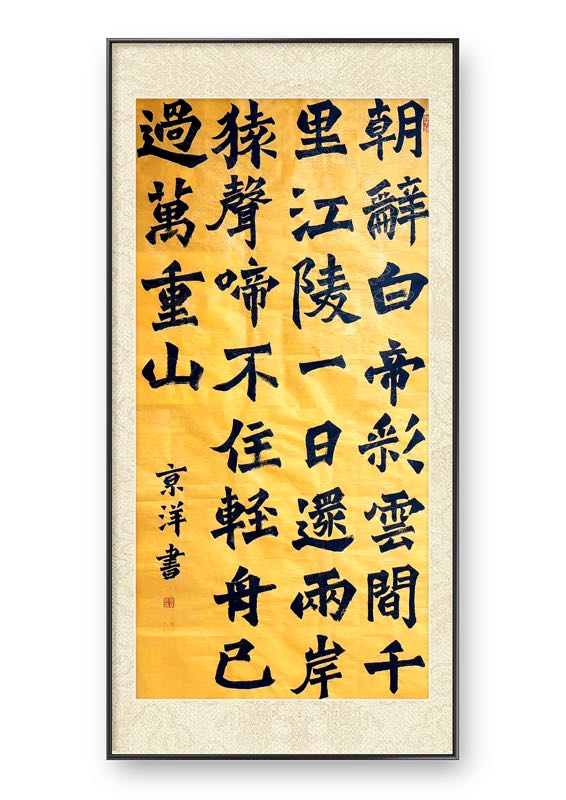 朝辭白帝彩雲間千
里江陵一日還兩岸
猿聲啼不住軽舟已
過萬重山
京洋書